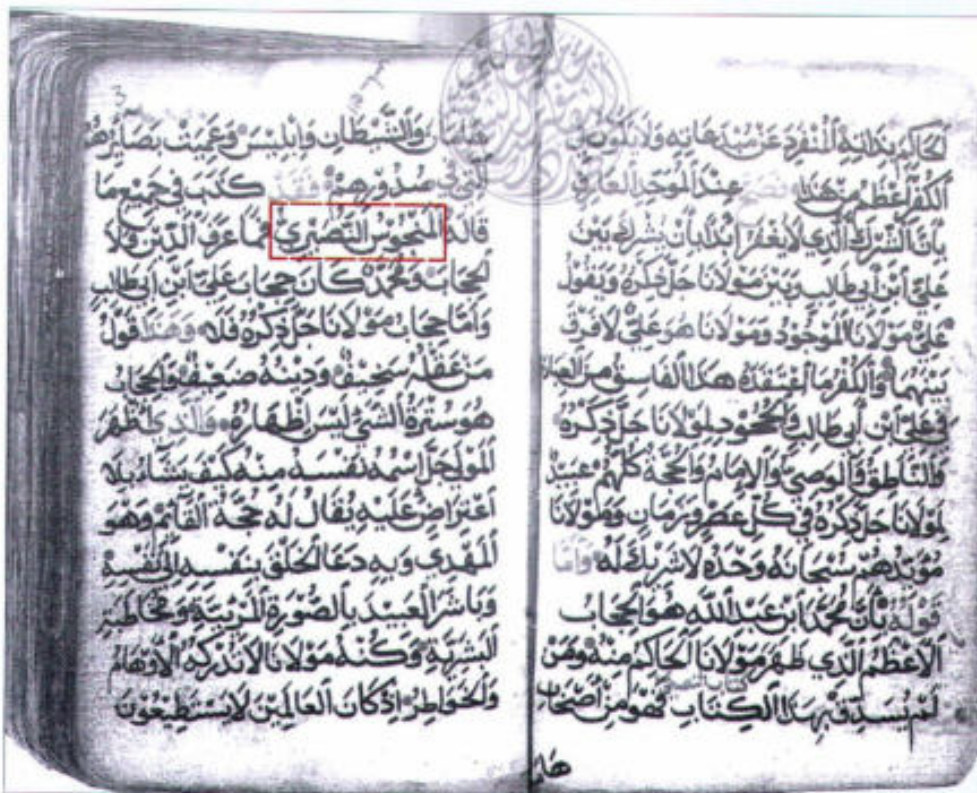 الحاكم بذاته المنفرد عن مبدعاته ولا يكون من
الكفر أعظم من هذا فصح عند الموحد العارف
بأن الشرك الذي لا يغفر أبدا بأن يشرك بين
علي ابن أبي طالب وبين مولانا جل ذكره ويقول
علي مولانا الموجود ومولانا هو علي لا فرق
بينهما والكفر ما اعتقده هذا الفاسق من العبادة
في علي ابن أبي طالب والجحود لمولانا جل ذكره
والناطق والوصي والإمام والحجة كلهم عبيد
لمولانا جل ذكره في كل عصر وزمان ومولانا
مؤيدهم سبحانه وحده لا شريك له وأما
قوله بأن محمد ابن عبد الله هو الحجاب
الأعظم الذي ظهر مولانا الحاكم منه ومن
لم يصدق بهذا الكتاب فهو من أصحاب
هامان
3
هامان والشيطان وإبليس وعميت بصائرهم
التي في صدورهم فقد كذب في جميع ما
قاله المنجوس النصيري فما عرف الدين ولا
الحجاب ومحمد كان حجاب علي ابن أبي طالب
وأما حجاب مولانا جل ذكره فلا وهذا قول
من عقله سخيف ودينه ضعيف والحجاب
هو سترة الشيء ليس إظهاره والذي أظهر
المولى جل اسمه نفسه منه كيف يشاء بلا
اعتراض عليه يقال له حجة القائم وهو
المهدي وبه دعا الخلق بنفسه إلى نفسه
وباشر العبيد بالصورة المرئية ومخاطبة
البشرية وكنه مولانا لا تدركه الأوهام
والخواطر إذ كان العالمين لا يستطيعون